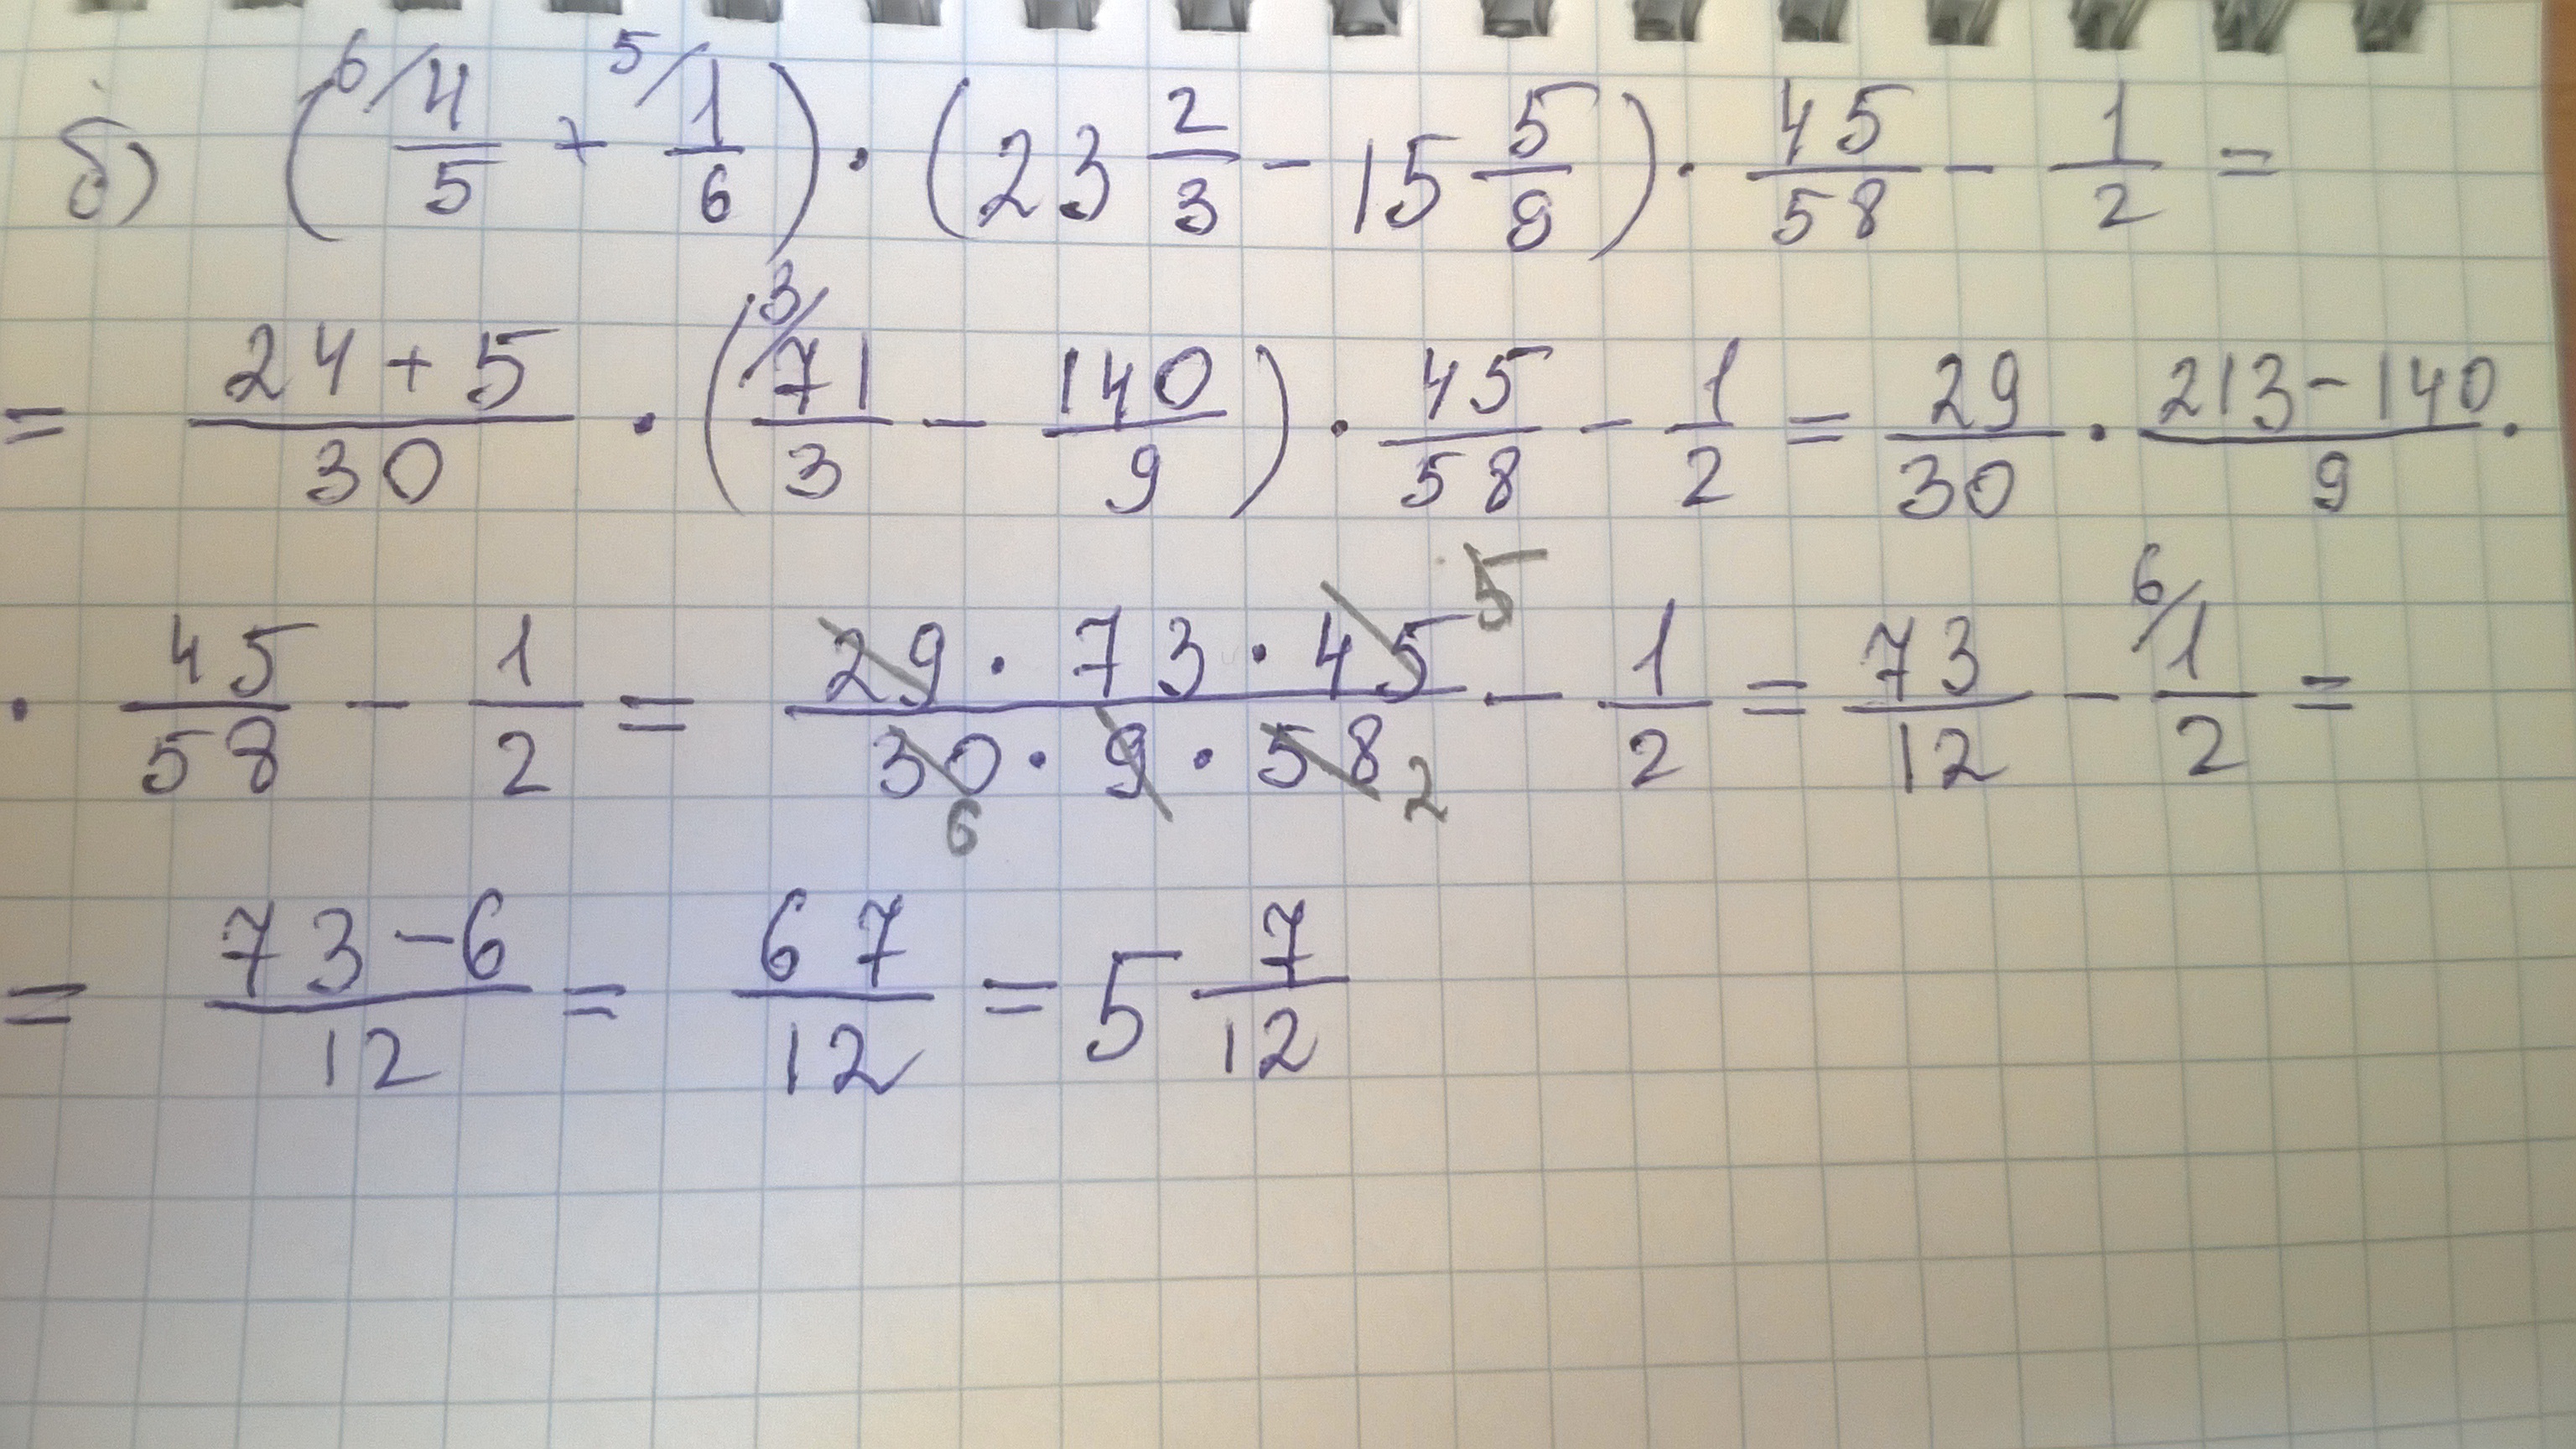 б) (⁶⁄4/5 + ⁵⁄1/6) · (23 2/3 − 15 5/9) · 45/58 − 1/2 =
= (24 + 5)/30 · (³⁄71/3 − 140/9) · 45/58 − 1/2 = 29/30 · (213 − 140)/9 ·
· 45/58 − 1/2 = (29 · 73 · 45 5)/(30 6 · 9 · 58 2) − 1/2 = 73/12 − ⁶⁄1/2 =
= (73 − 6)/12 = 67/12 = 5 7/12